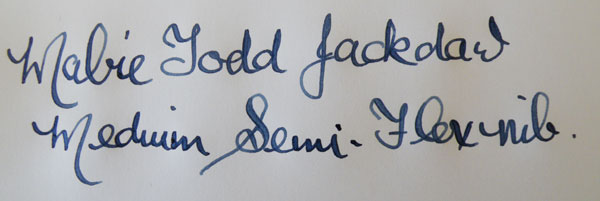 Mabie Todd Jackdaw
Medium Semi-Flex nib.